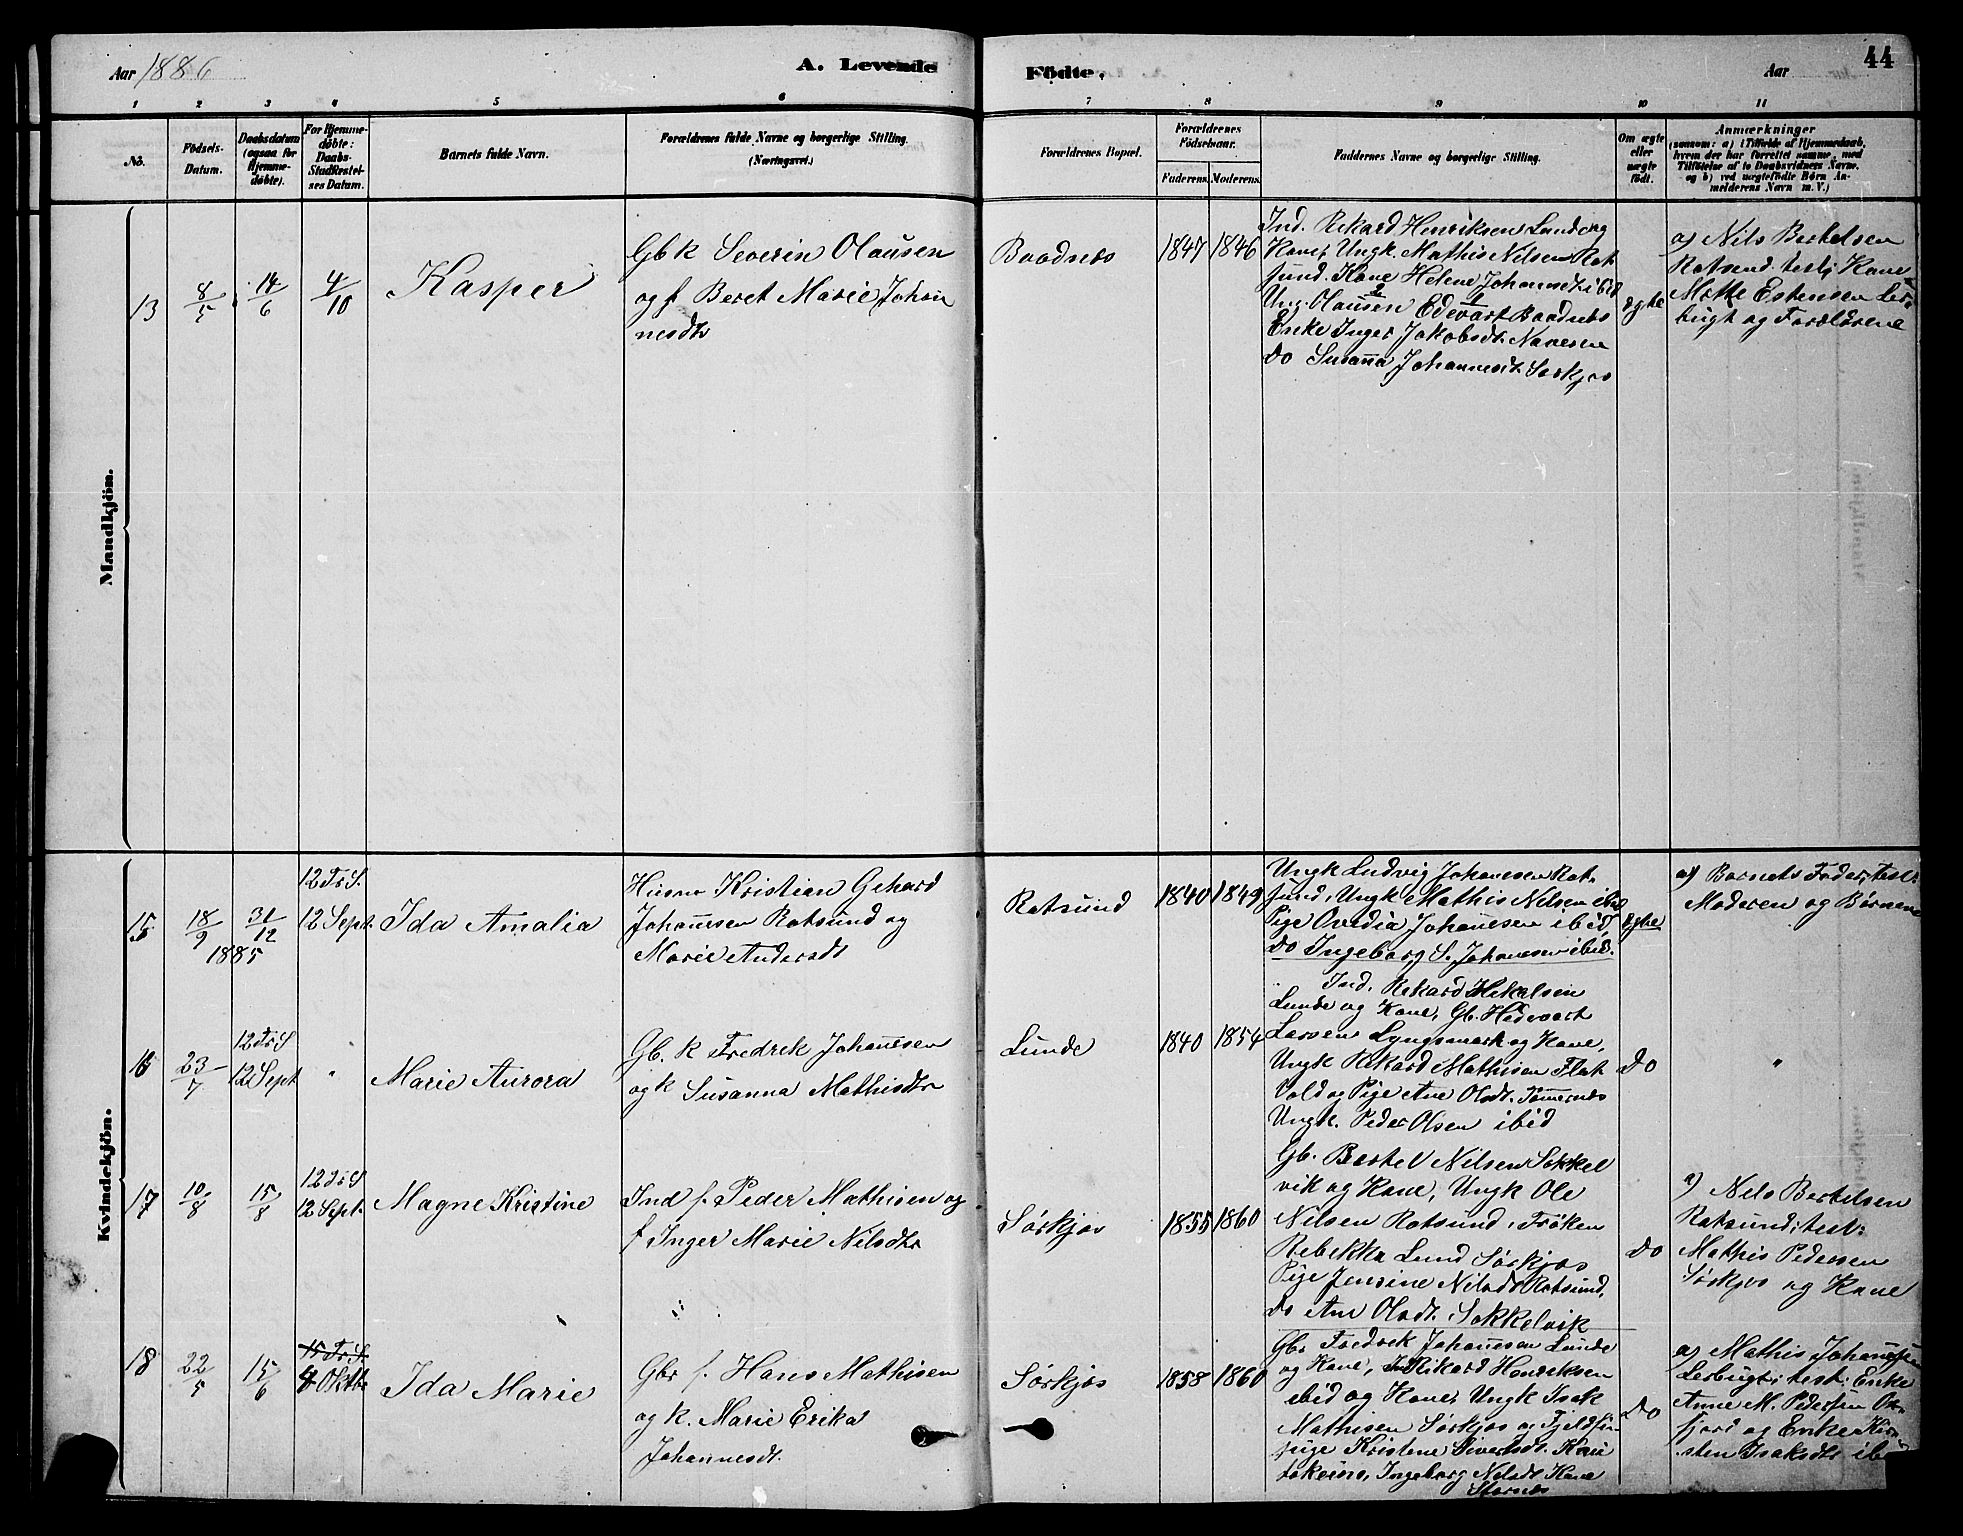 Aar 1886
A. Levende
Födte.
Aar
44
1 2 3 4 5 6 7 8 9 10 11
No.
Födsels-
Datum.
Daabsdatum
(ogsaa for
Hjemme-
döbte).
For Hjemme-
døbte:
Daabs-
Stadfæstel-
ses Datum.
Barnets fulde Navn.
Forældrenes fulde Navne og borgerlige Stilling.
(Næringsvei.)
Forældrenes Bopæl.
Forældrenes
Födselsaar.
Faderens. Moderens.
Faddernes Navne og borgerlige Stilling.
Om ægte
eller
uægte
födt.
Anmærkninger
(saasom: a) i Tilfælde af Hjemmedaab,
hvem der har forrettet samme, med
Tilföielse af to Daabsvidners Navne.
og b) ved uægtefödte Börn An-
melderens Navn m. V.)
Mandkjön.
13
8/5
14/6
4/10
Kasper
Gb k Severin Olausen
og f Beret Marie Johan
nesdtr
Baadnes
1847 1846
Ind. Rikard Henriksen Lund og
Kone, Ungk. Mathis Nilsen Rot
sund. Kone Helene Johannsdt ibid
Ung. Olausen Edevart Baadnes
Enke Inger Jakobsdt.
do Susanna Johannesdt. Sørkjos
ægte
a) Nils Bertelsen
Rotsund. test; Kone
Mette Estensen Ler-
bugt og Forældrene
Kvindekjön.
15
18/9
31/12
1885
12 Tr S.
12 Sept.
Ida Amalia
Kristian Gehard
Johannesen Rotsund og
Marie Andersdt
Rotsund
1840 1849
Ungk Ludvig Johanesen Rot-
sund, Ungk Mathis Nilsen ibid
Pige Ovedia Johanesen ibid,
do Ingeborg S. Johanesen ibid.
ægte
a) Barnets Fader, test:
Moderen og Børnene
16
23/7
12 Tr S
12 Sept
"
Marie Aurora
Gb. k Fredrek Johannesen
og k Susanna Mathisdtr
Lunde
1840 1854
Ind. Rekard Hekalsen
Lunde og Kone, Gb. Hedevart
Larsen Lyngsmark og Kone,
Ungk Rikard Mathisen Flat
Vold og Pige Ane Olsdt.
Ungk. Peder Olsen ibid
do
"
17
10/8
15/8
12 Tr S
12 Sept.
Magne Kristine
Ind f. Peder Mathisen og
f Inger Marie Nilsdtr
Sørkjos
1855 1860
Gb. Bertel Nilsen Sokkel
vik og Kone, Ungk Ole
Nilsen Rotsund, Frøken
Rebekka Lund Sørkjos
Pige Jensine Nilsdt Rotsund,
do Ane Olsdt. Sokkelvik
do
a) Nils Bertelsen
Rotsund; test:
Mathis Pedersen
Sørkjos og Kone
18
22/5
15/6
15 Tr S.
Oktbr
Ida Marie
Gbr f. Hans Mathisen
og k. Marie Erika
Johannesdt.
Sørkjos
1858 1860
Gbr Fredrek Johannesen Lunde
og Kone, Ind Rikard Henriksen
ibid og Kone, Ungk Isak
Mathisen Sørkjos og Fjeldfin
pige Kristene Sivertsdt. Kau
tokeino, Ingeborg Nilsdt Kone
Stornes
do
a) Mathis Johannessen
Lerbugt; test: Enke
Anne M. Pedersen Ox-
fjord og Enke Kir-
sten Isaksdtr ibid